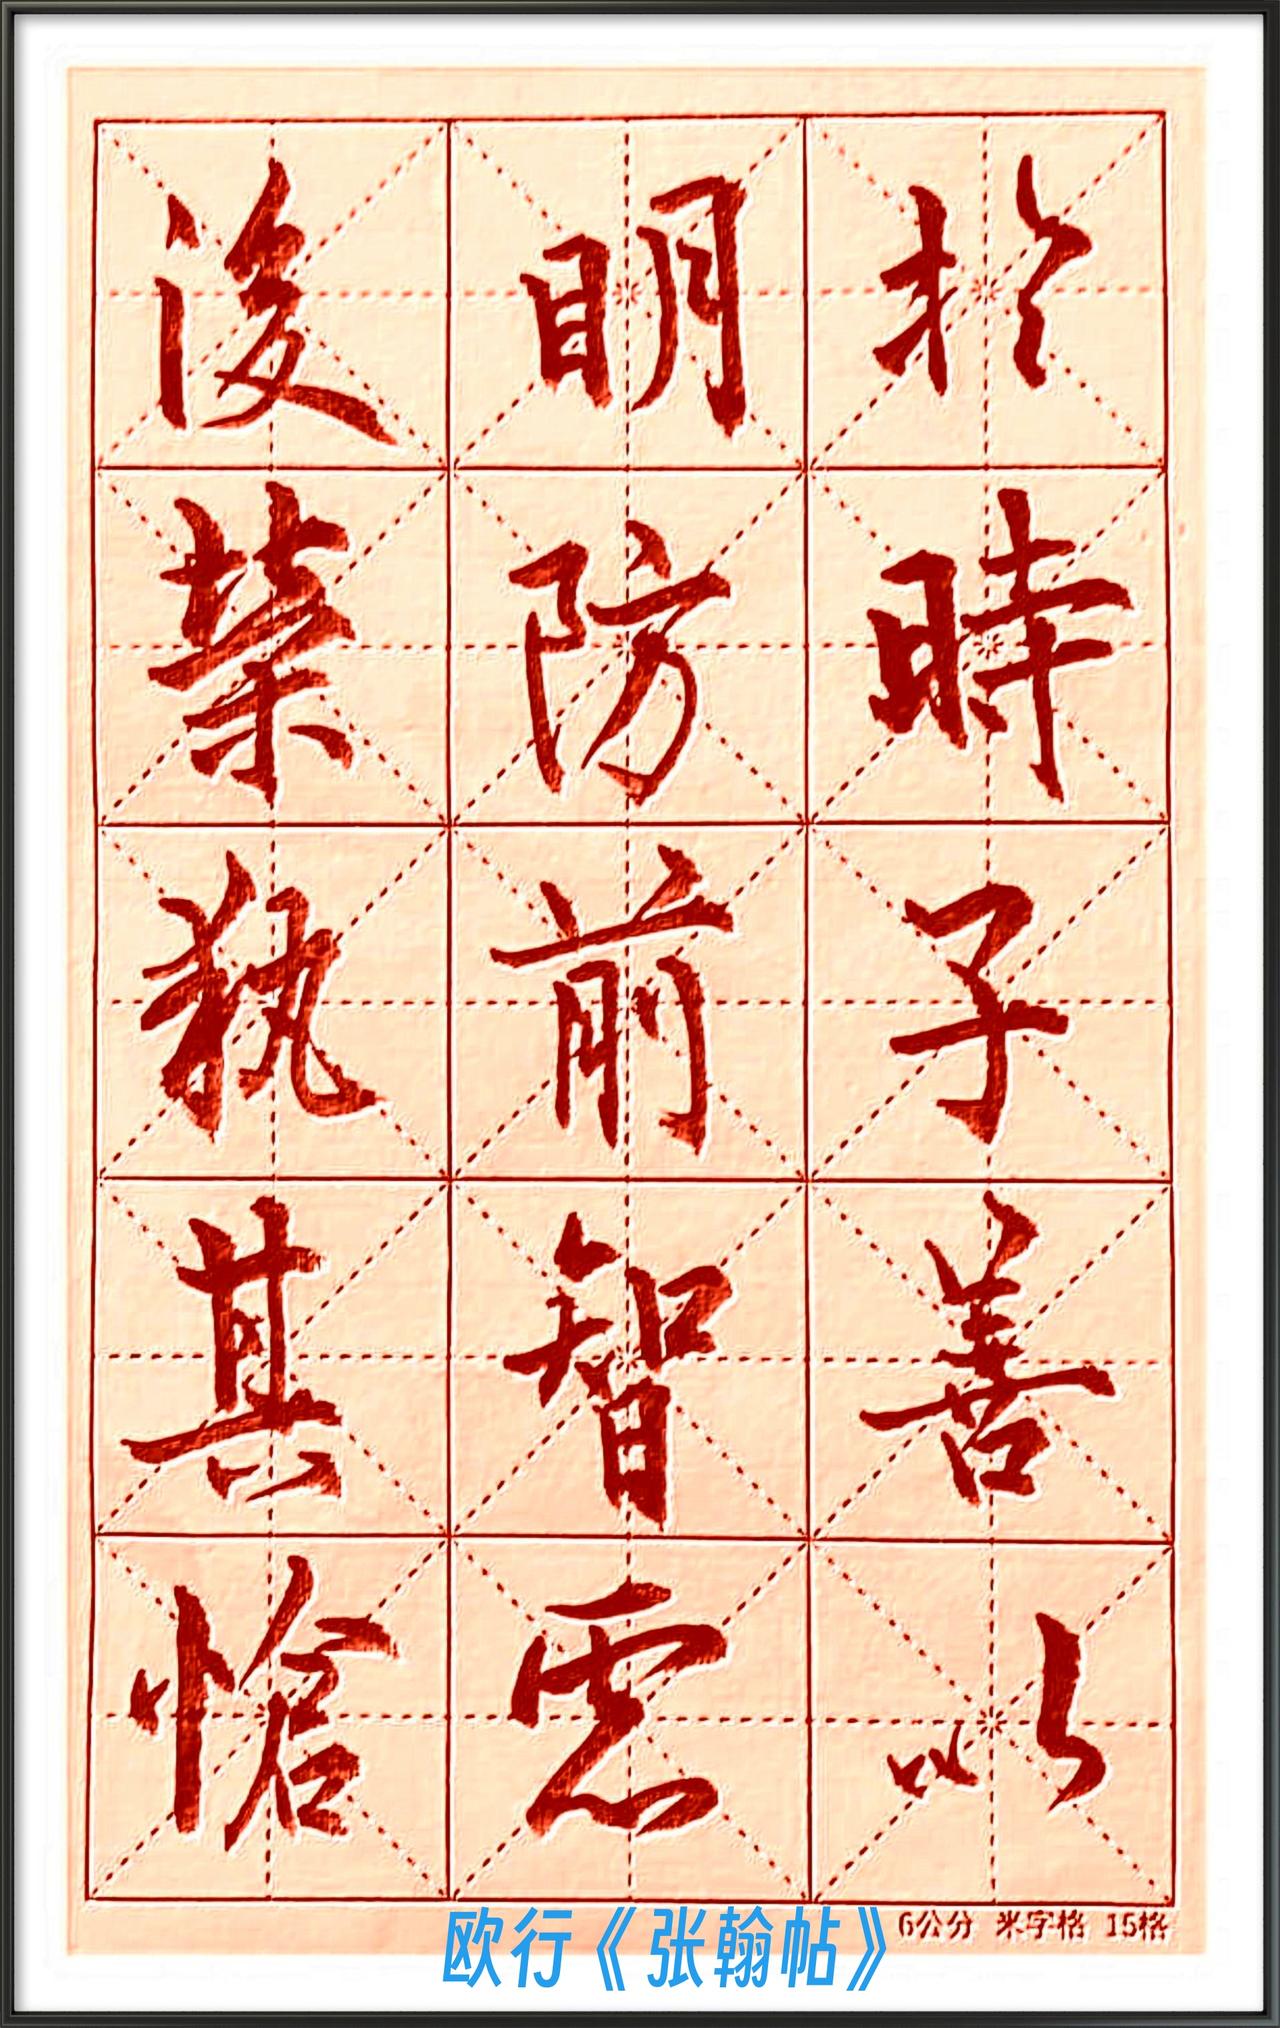 於時子善以
明防前智慮
後榮執其愴
6公分 米字格 15格
欧行《张翰帖》